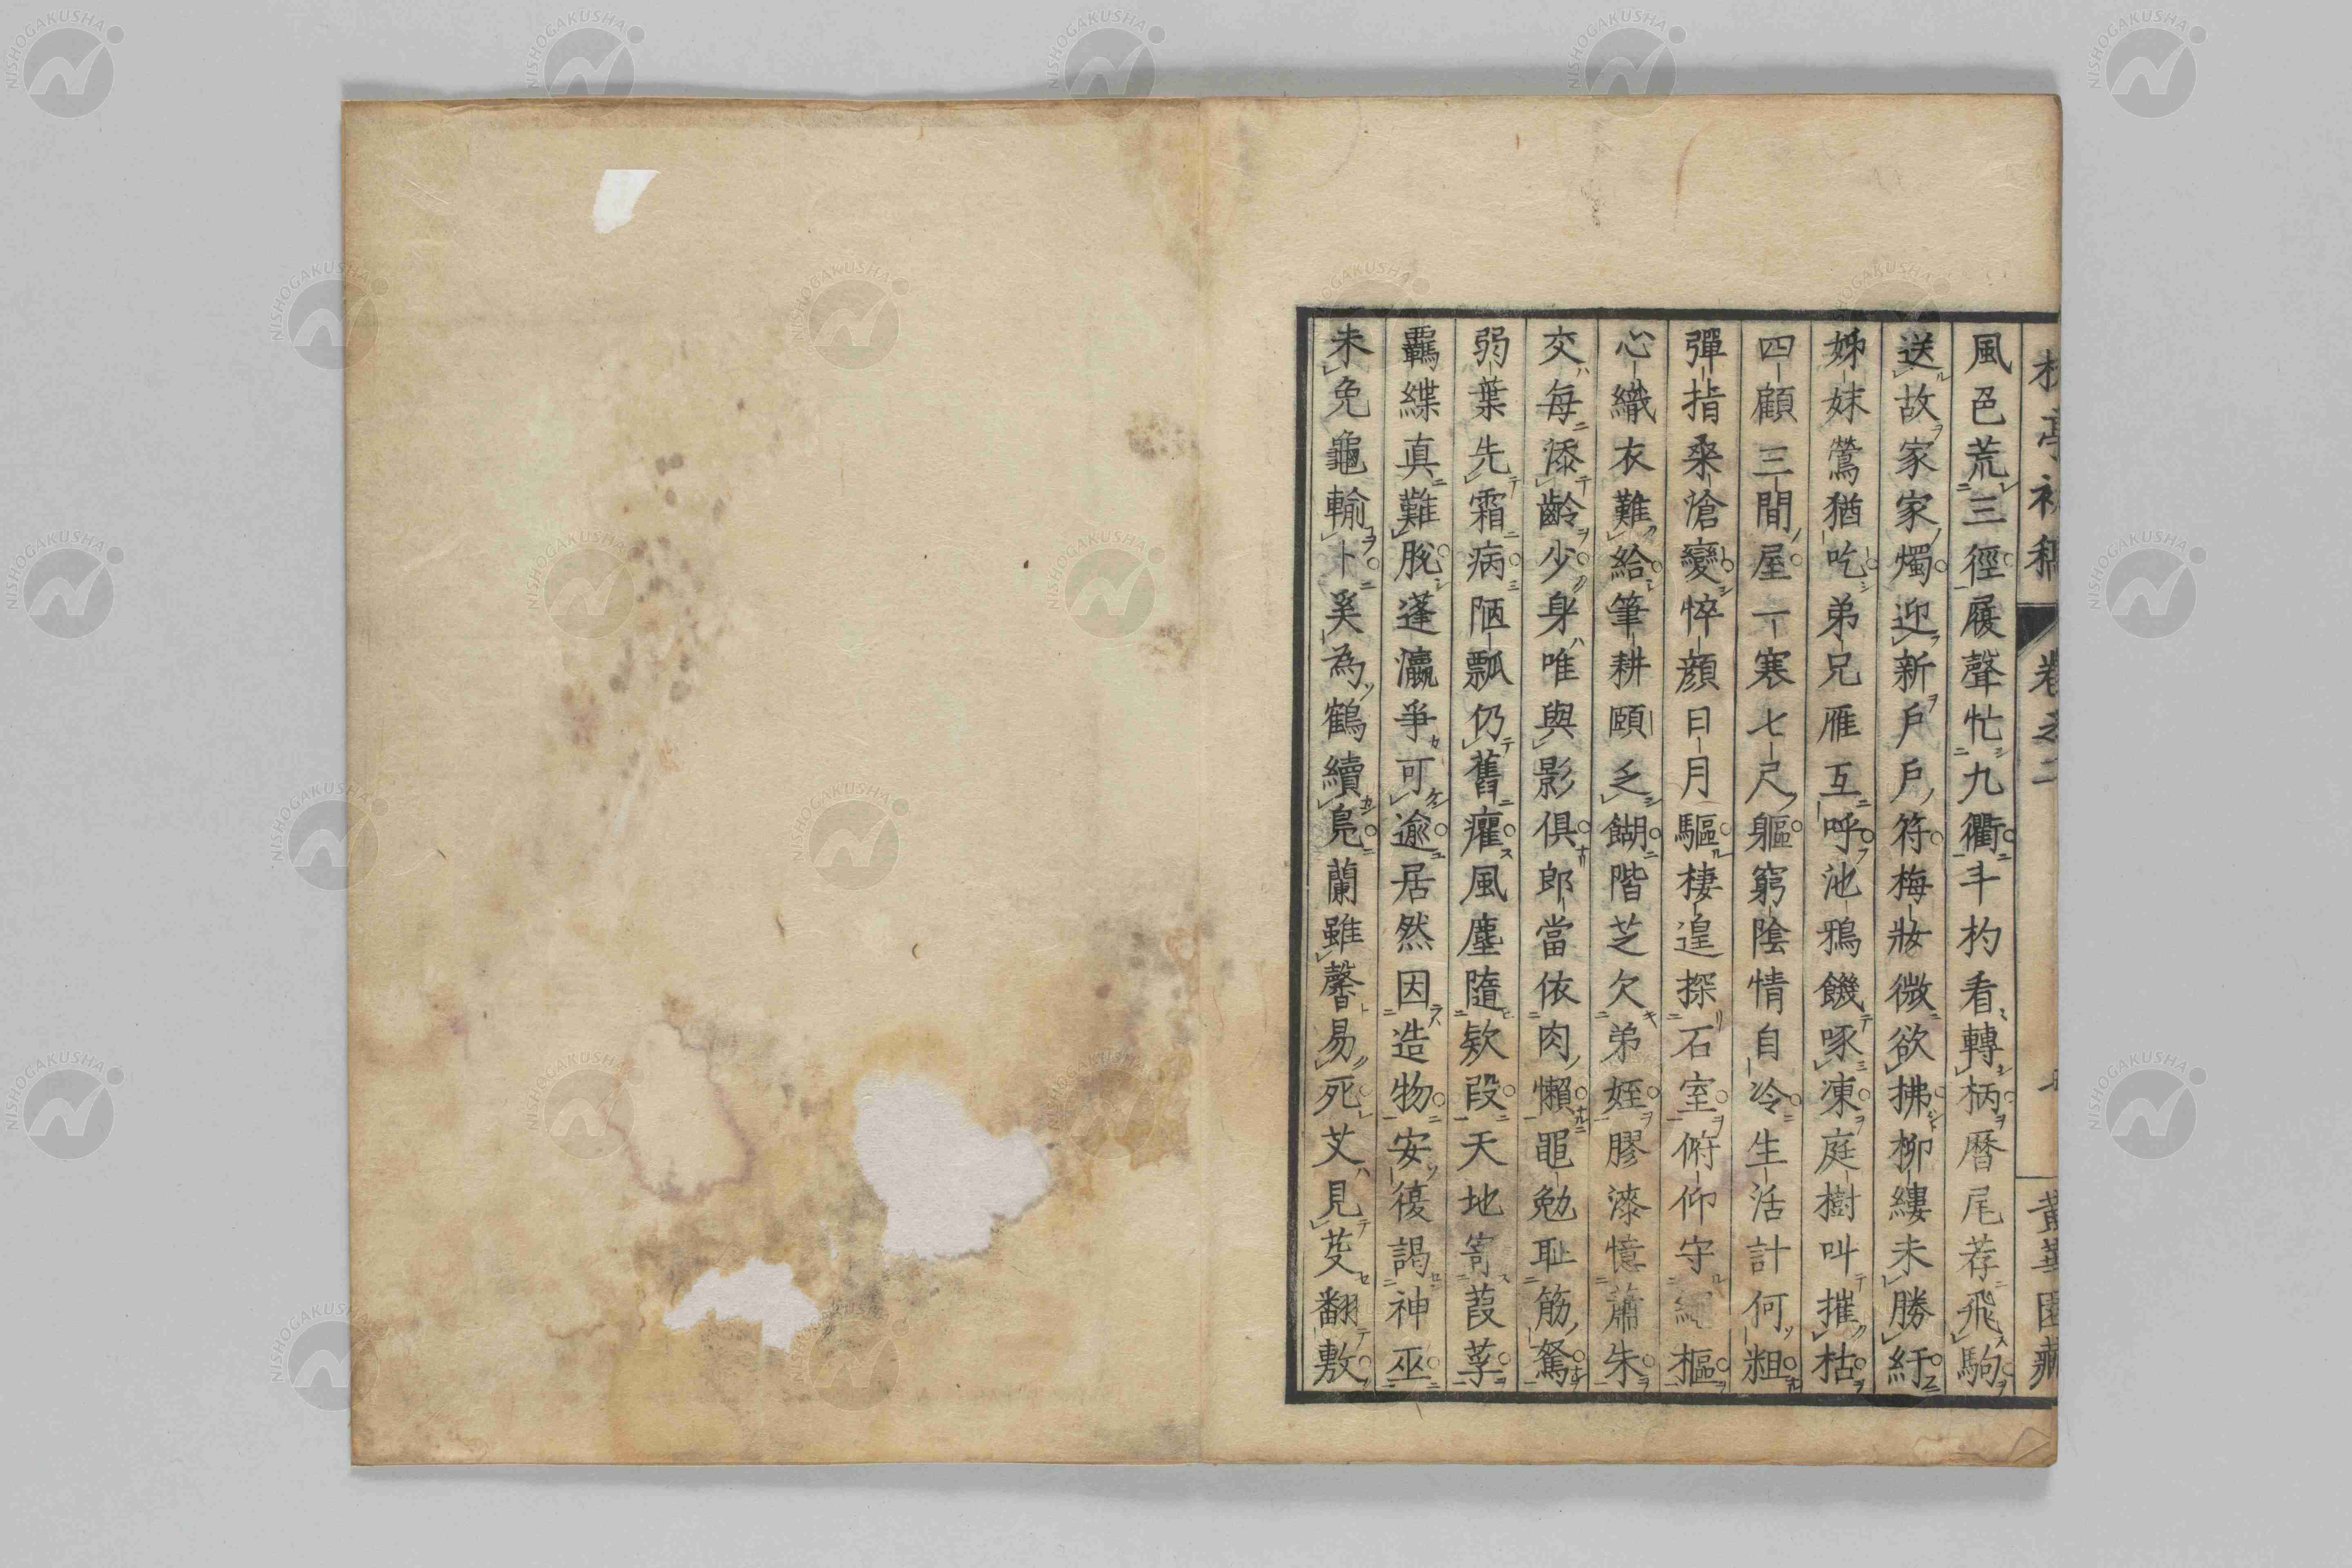 卷之二
風色荒三徑履聲忙九衢斗杓看轉柄曆尾荐飛駒
送故家家燭迎新戶戶符梅妝微欲拂柳縷未勝紆
姊妹鶯猶吃弟兄雁互呼池鴉饑啄凍庭樹叫摧枯
四顧三間屋一寒七尺軀窮陰情自冷生活計何粗
彈指桑滄變悴顏日月驅棲遑探石室俯仰守繩樞
心織衣難給筆耕頤乏餬階芝欠弟姪膠漆憶蕭朱
交每添齡少身唯與影俱郎當依肉懶黽勉耻筋駑
弱葉先霜病陋瓢仍舊癯風塵隨欵段天地寄葭莩
羈緤真難脫蓬瀛爭可逾居然因造物安復謁神巫
未免龜輸卜奚為鶴續鳧蘭雖馨易死艾見芟翻敷
NISHOGAKUSHA